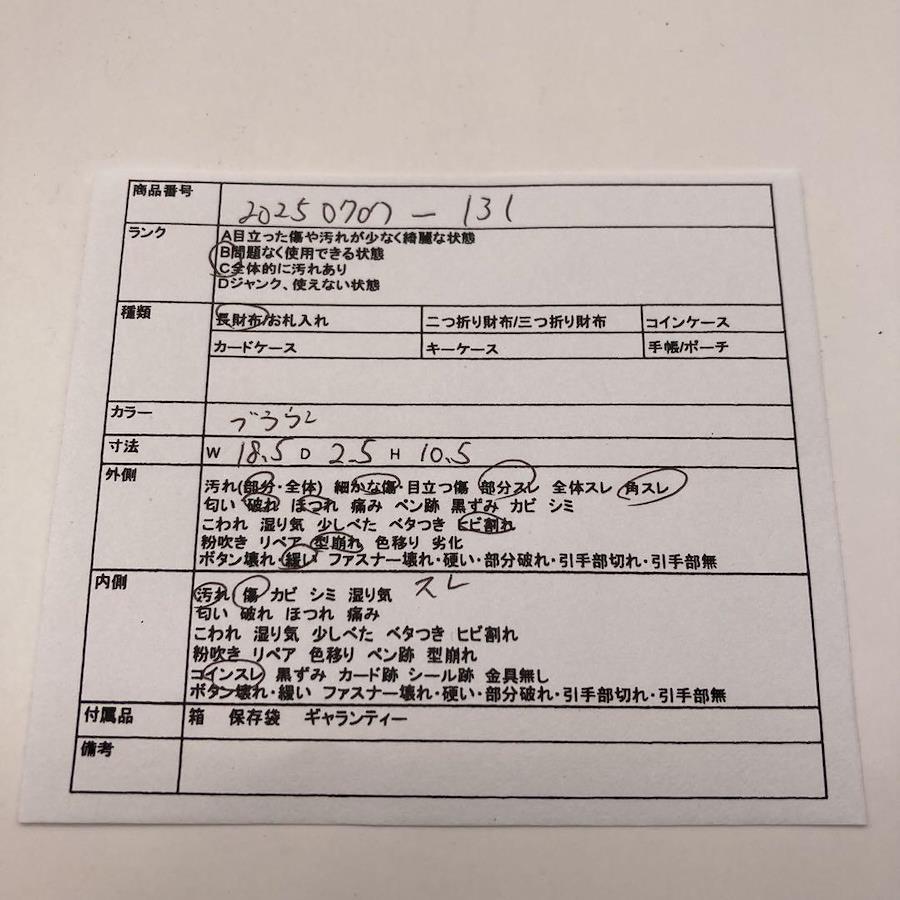 商品番号
20250707-131
ランク
A目立った傷や汚れが少なく綺麗な状態
B問題なく使用できる状態
C全体的に汚れあり
Dジャンク、使えない状態
種類
長財布/お札入れ 二つ折り財布/三つ折り財布 コインケース
カードケース キーケース 手帳/ポーチ
カラー
ブラウン
寸法
W 18.5 D 2.5 H 10.5
外側
汚れ(部分・全体) 細かな傷・目立つ傷 部分スレ 全体スレ 角スレ
匂い 破れ ほつれ 痛み ペン跡 黒ずみ カビ シミ
こわれ 湿り気 少しべた ベタつき ヒビ割れ
粉吹き リペア 型崩れ 色移り 劣化
ボタン壊れ・緩い ファスナー壊れ・硬い・部分破れ・引手部切れ・引手部無
内側
汚れ 傷 カビ シミ 湿り気 スレ
匂い 破れ ほつれ 痛み
こわれ 湿り気 少しべた ベタつき ヒビ割れ
粉吹き リペア 色移り ペン跡 型崩れ
コインスレ 黒ずみ カード跡 シール跡 金具無し
ボタン壊れ・緩い ファスナー壊れ・硬い・部分破れ・引手部切れ・引手部無
付属品
箱 保存袋 ギャランティー
備考